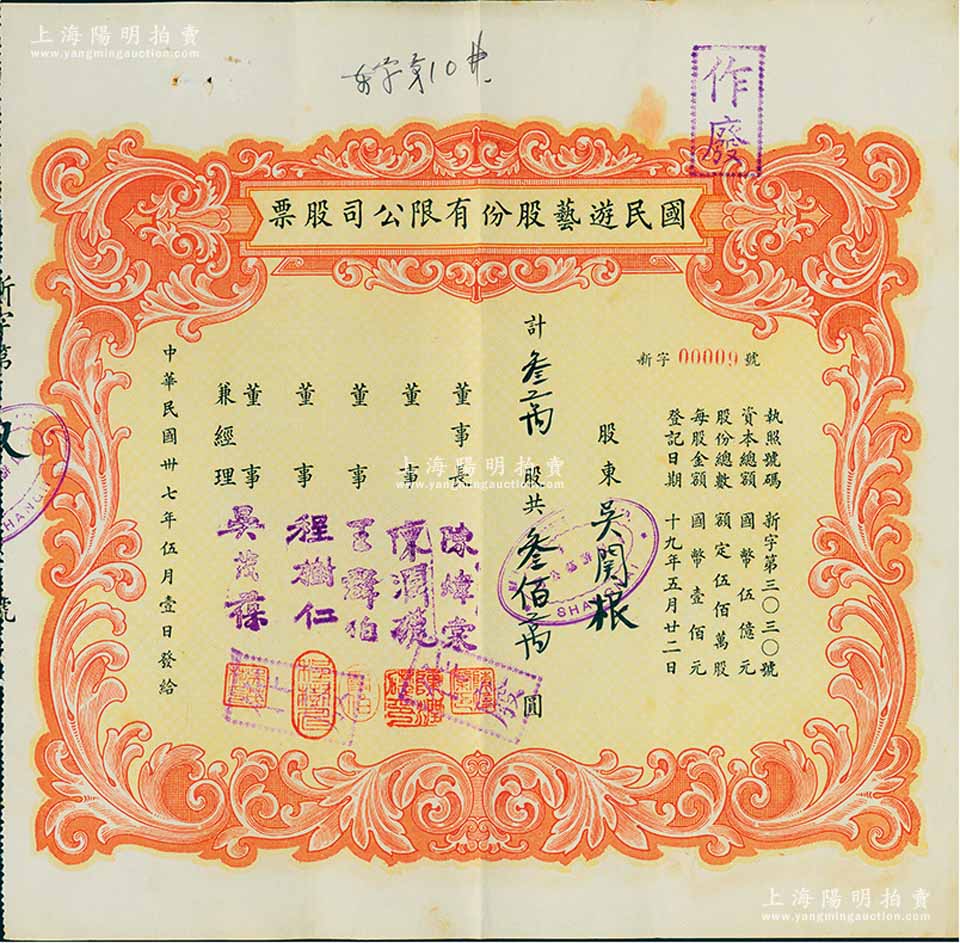 上海陽明拍賣
www.yangmingauction.com
作廢
國民遊藝股份有限公司股票
新字 00009 號
執照號碼 新字第三〇三〇號
資本總額 國幣伍億元
股份總數 額定伍佰萬股
每股金額 國幣壹佰元
登記日期 十九年五月廿二日
股東 吳開根
計叁萬股共叁佰萬圓
董事長 陳煒棠
董事 陳潤
董事 王
董事 程樹仁
董事兼經理 吳茂葆
中華民國卅七年伍月壹日發給
新字第
號
SHANG
SHA
作廢
上海陽明拍賣
www.yangmingauction.com
上海陽明拍賣
www.yangmingauction.com